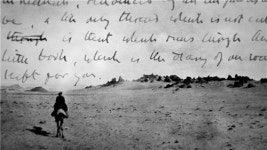 be, & the only thread which is not cut
~~though~~ is that which runs through the
little book, which is the diary of our
kept for you.